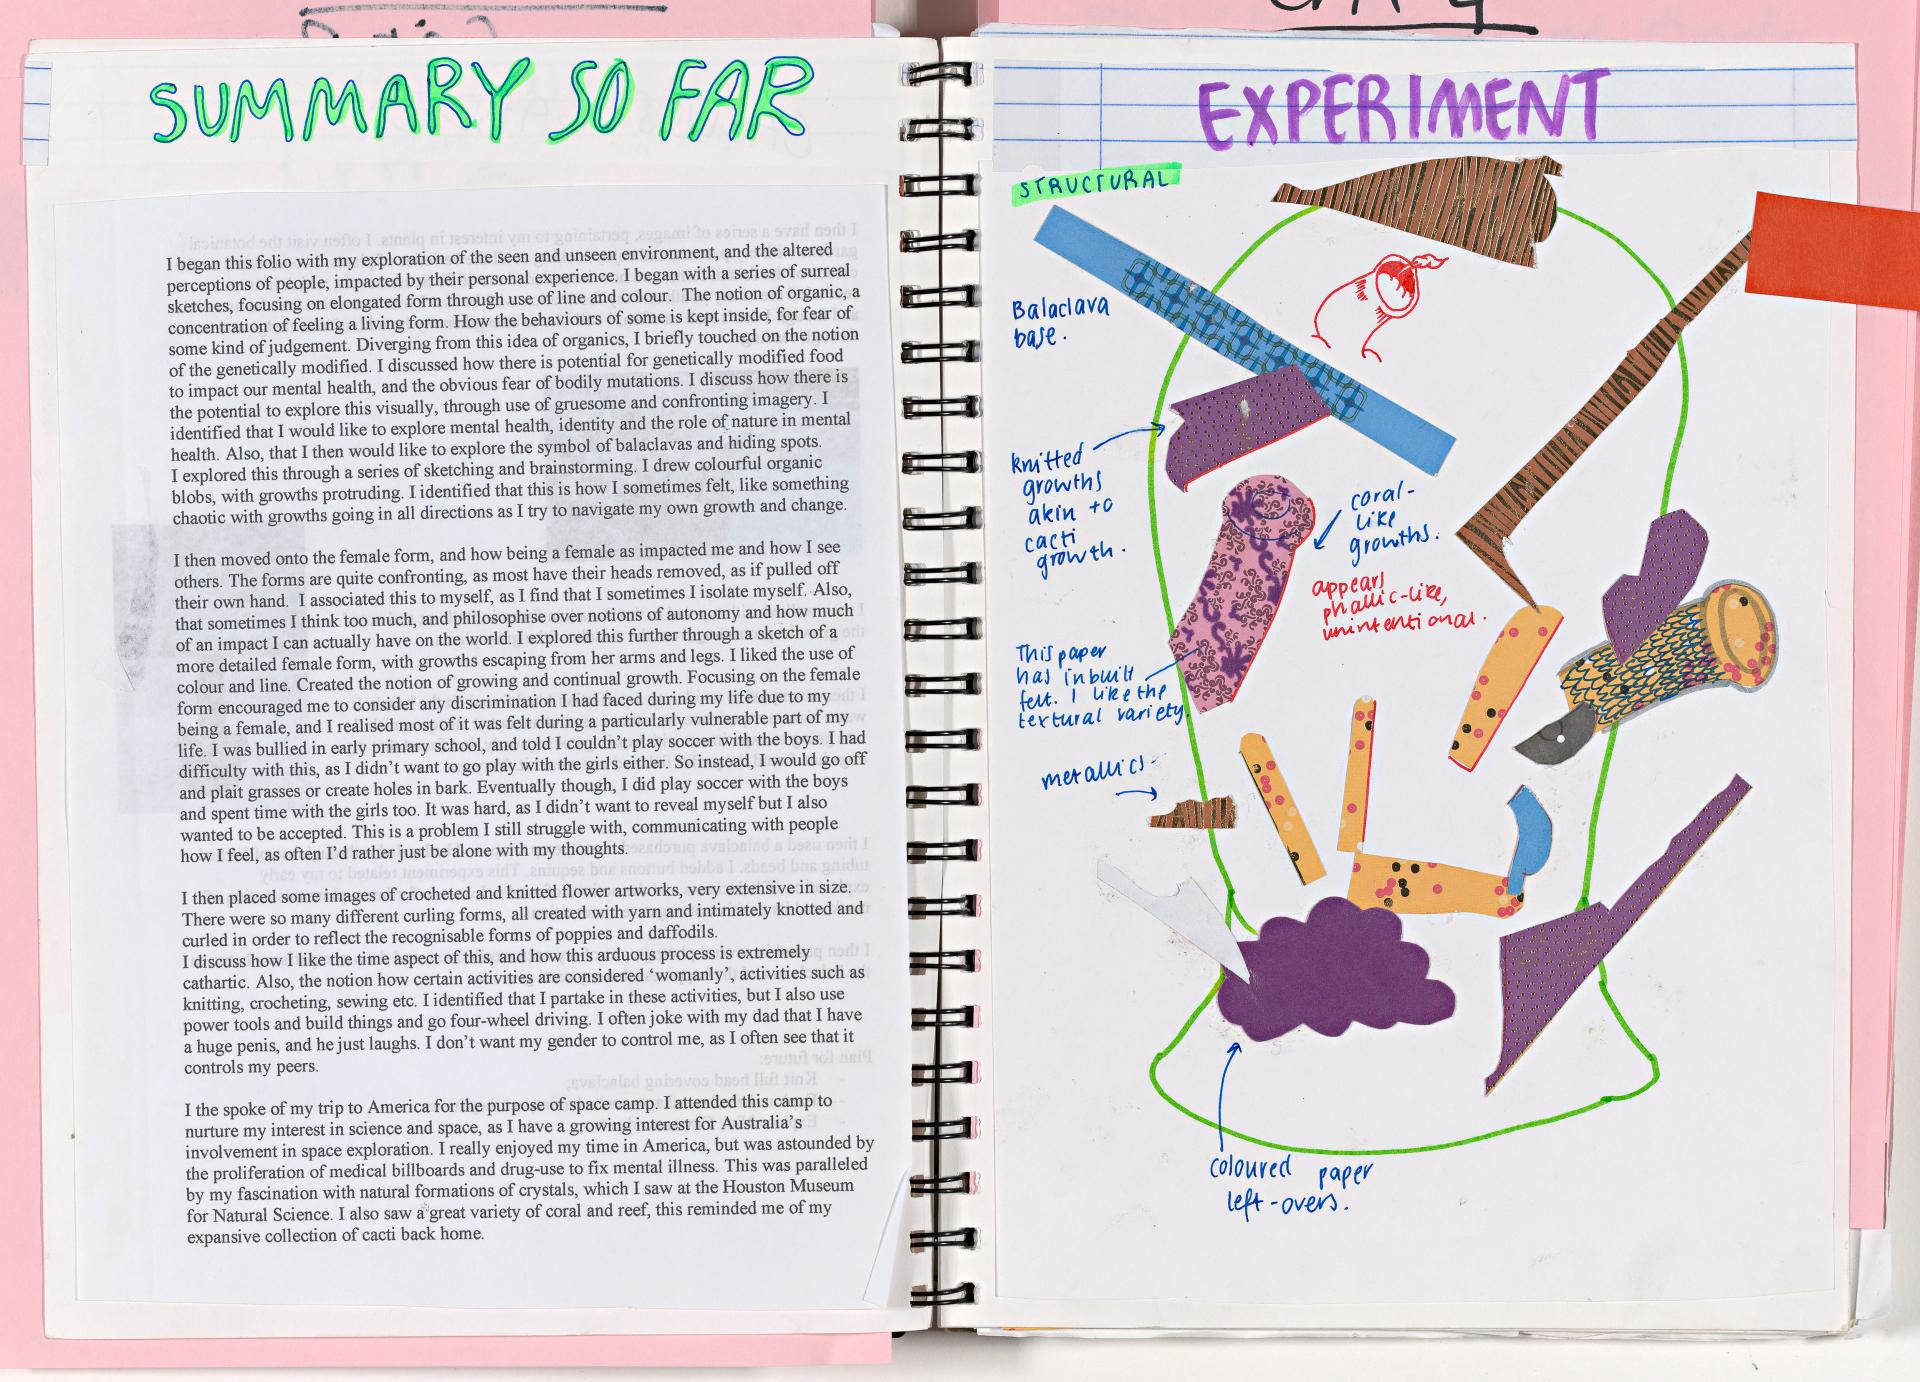 SUMMARY SO FAR
I began this folio with my exploration of the seen and unseen environment, and the altered
perceptions of people, impacted by their personal experience. I began with a series of surreal
sketches, focusing on elongated form through use of line and colour. The notion of organic, a
concentration of feeling a living form. How the behaviours of some is kept inside, for fear of
some kind of judgement. Diverging from this idea of organics, I briefly touched on the notion
of the genetically modified. I discussed how there is potential for genetically modified food
to impact our mental health, and the obvious fear of bodily mutations. I discuss how there is
the potential to explore this visually, through use of gruesome and confronting imagery. I
identified that I would like to explore mental health, identity and the role of nature in mental
health. Also, that I then would like to explore the symbol of balaclavas and hiding spots.
I explored this through a series of sketching and brainstorming. I drew colourful organic
blobs, with growths protruding. I identified that this is how I sometimes felt, like something
chaotic with growths going in all directions as I try to navigate my own growth and change.
I then moved onto the female form, and how being a female as impacted me and how I see
others. The forms are quite confronting, as most have their heads removed, as if pulled off
their own hand. I associated this to myself, as I find that I sometimes I isolate myself. Also,
that sometimes I think too much, and philosophise over notions of autonomy and how much
of an impact I can actually have on the world. I explored this further through a sketch of a
more detailed female form, with growths escaping from her arms and legs. I liked the use of
colour and line. Created the notion of growing and continual growth. Focusing on the female
form encouraged me to consider any discrimination I had faced during my life due to my
being a female, and I realised most of it was felt during a particularly vulnerable part of my
life. I was bullied in early primary school, and told I couldn't play soccer with the boys. I had
difficulty with this, as I didn't want to go play with the girls either. So instead, I would go off
and plait grasses or create holes in bark. Eventually though, I did play soccer with the boys
and spent time with the girls too. It was hard, as I didn't want to reveal myself but I also
wanted to be accepted. This is a problem I still struggle with, communicating with people
how I feel, as often I'd rather just be alone with my thoughts.
I then placed some images of crocheted and knitted flower artworks, very extensive in size.
There were so many different curling forms, all created with yarn and intimately knotted and
curled in order to reflect the recognisable forms of poppies and daffodils.
I discuss how I like the time aspect of this, and how this arduous process is extremely
cathartic. Also, the notion how certain activities are considered 'womanly', activities such as
knitting, crocheting, sewing etc. I identified that I partake in these activities, but I also use
power tools and build things and go four-wheel driving. I often joke with my dad that I have
a huge penis, and he just laughs. I don't want my gender to control me, as I often see that it
controls my peers.
I the spoke of my trip to America for the purpose of space camp. I attended this camp to
nurture my interest in science and space, as I have a growing interest for Australia's
involvement in space exploration. I really enjoyed my time in America, but was astounded by
the proliferation of medical billboards and drug-use to fix mental illness. This was paralleled
by my fascination with natural formations of crystals, which I saw at the Houston Museum
for Natural Science. I also saw a great variety of coral and reef, this reminded me of my
expansive collection of cacti back home.
EXPERIMENT
STRUCTURAL
Balaclava
base.
knitted
growths
akin to
cacti
growth.
coral-
like
growths.
appears
phallic-like,
unintentional.
This paper
has inbuilt
felt. I like the
textural variety.
metallics.
coloured paper
left-overs.